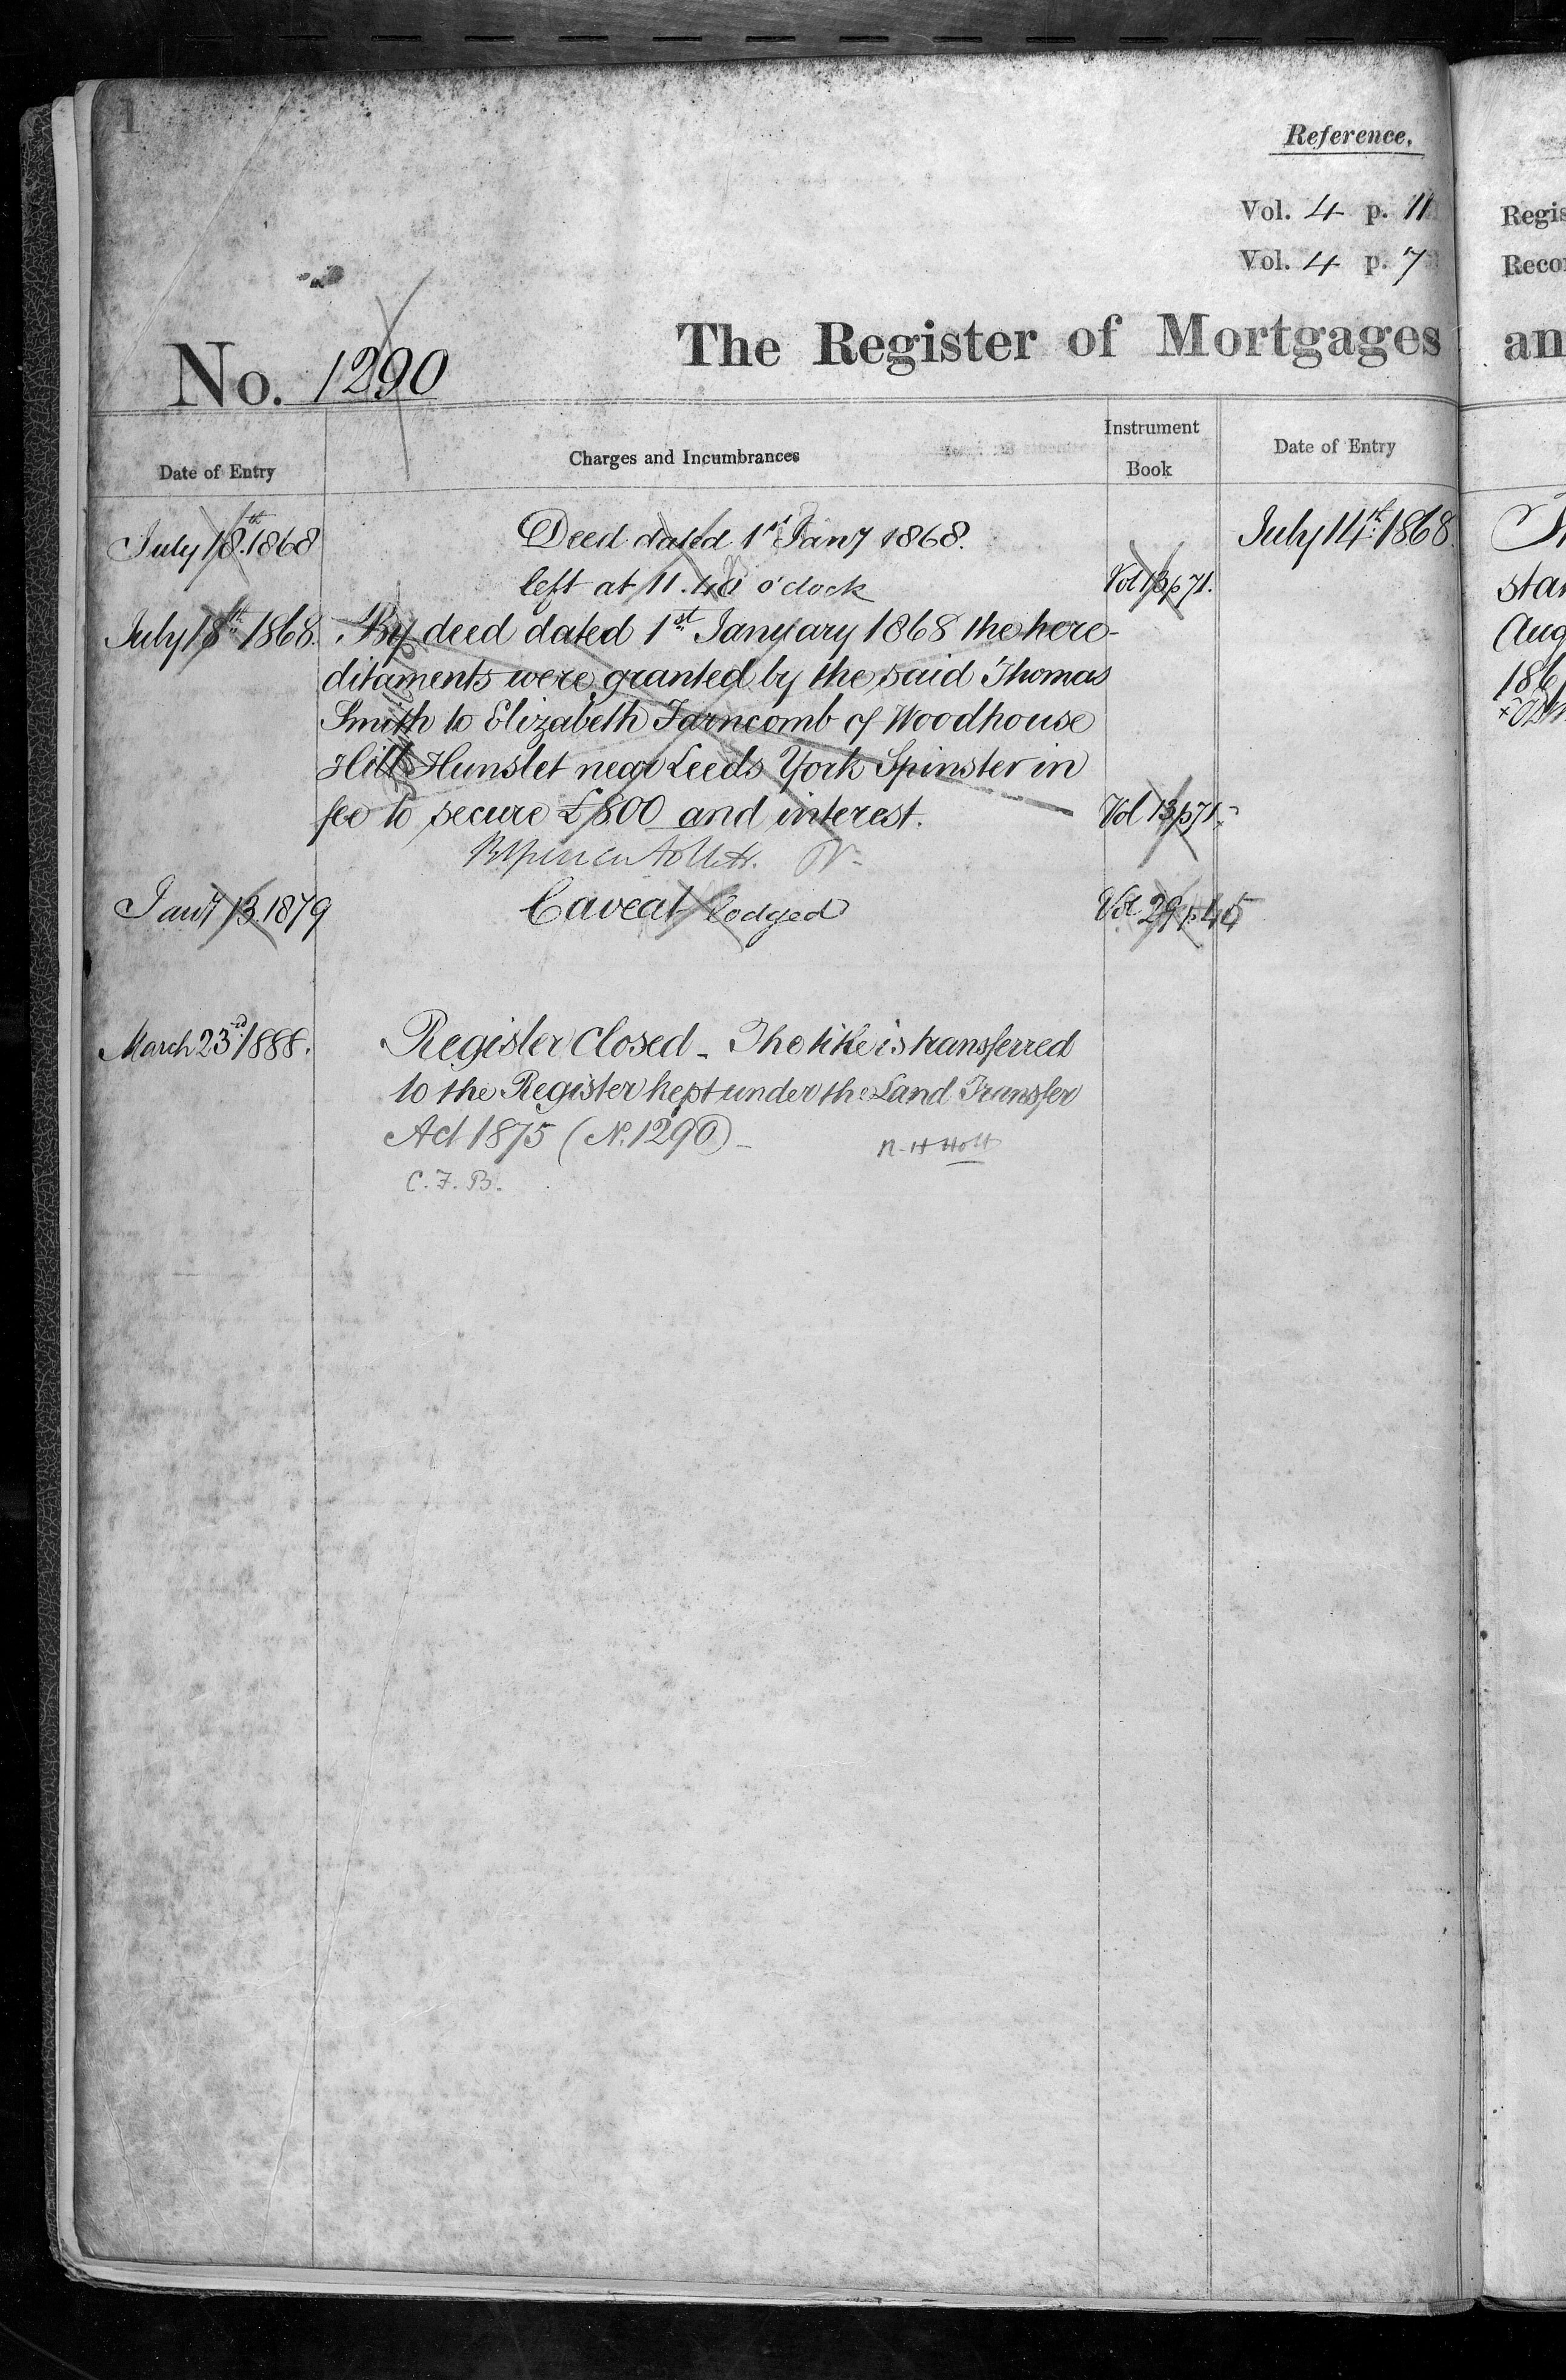 1
Reference.
Vol. 4 p. 11
Vol. 4 p. 7
No. 1290
The Register of Mortgages
Date of Entry
Charges and Incumbrances
Instrument
Book
Date of Entry
July 18th. 1868
Deed dated 1st Jany 1868.
left at 11.40 o'clock
Vol 13 p 71.
July 14th. 1868.
July 18th 1868.
By deed dated 1st January 1868 the here-
ditaments were granted by the said Thomas
Smith to Elizabeth Farncomb of Woodhouse
Hill Hunslet near Leeds York Spinster in
fee to secure £800 and interest.
Vol 13 p 71.
Jany 13. 1879
Caveat lodged
Vol 29 p. 45
March 23rd. 1888.
Register Closed - The title is transferred
to the Register kept under the Land Transfer
Act 1875 (N. 1290) -
R. H Holt
C. F. B.
Regis
Reco
an
star
Aug
186